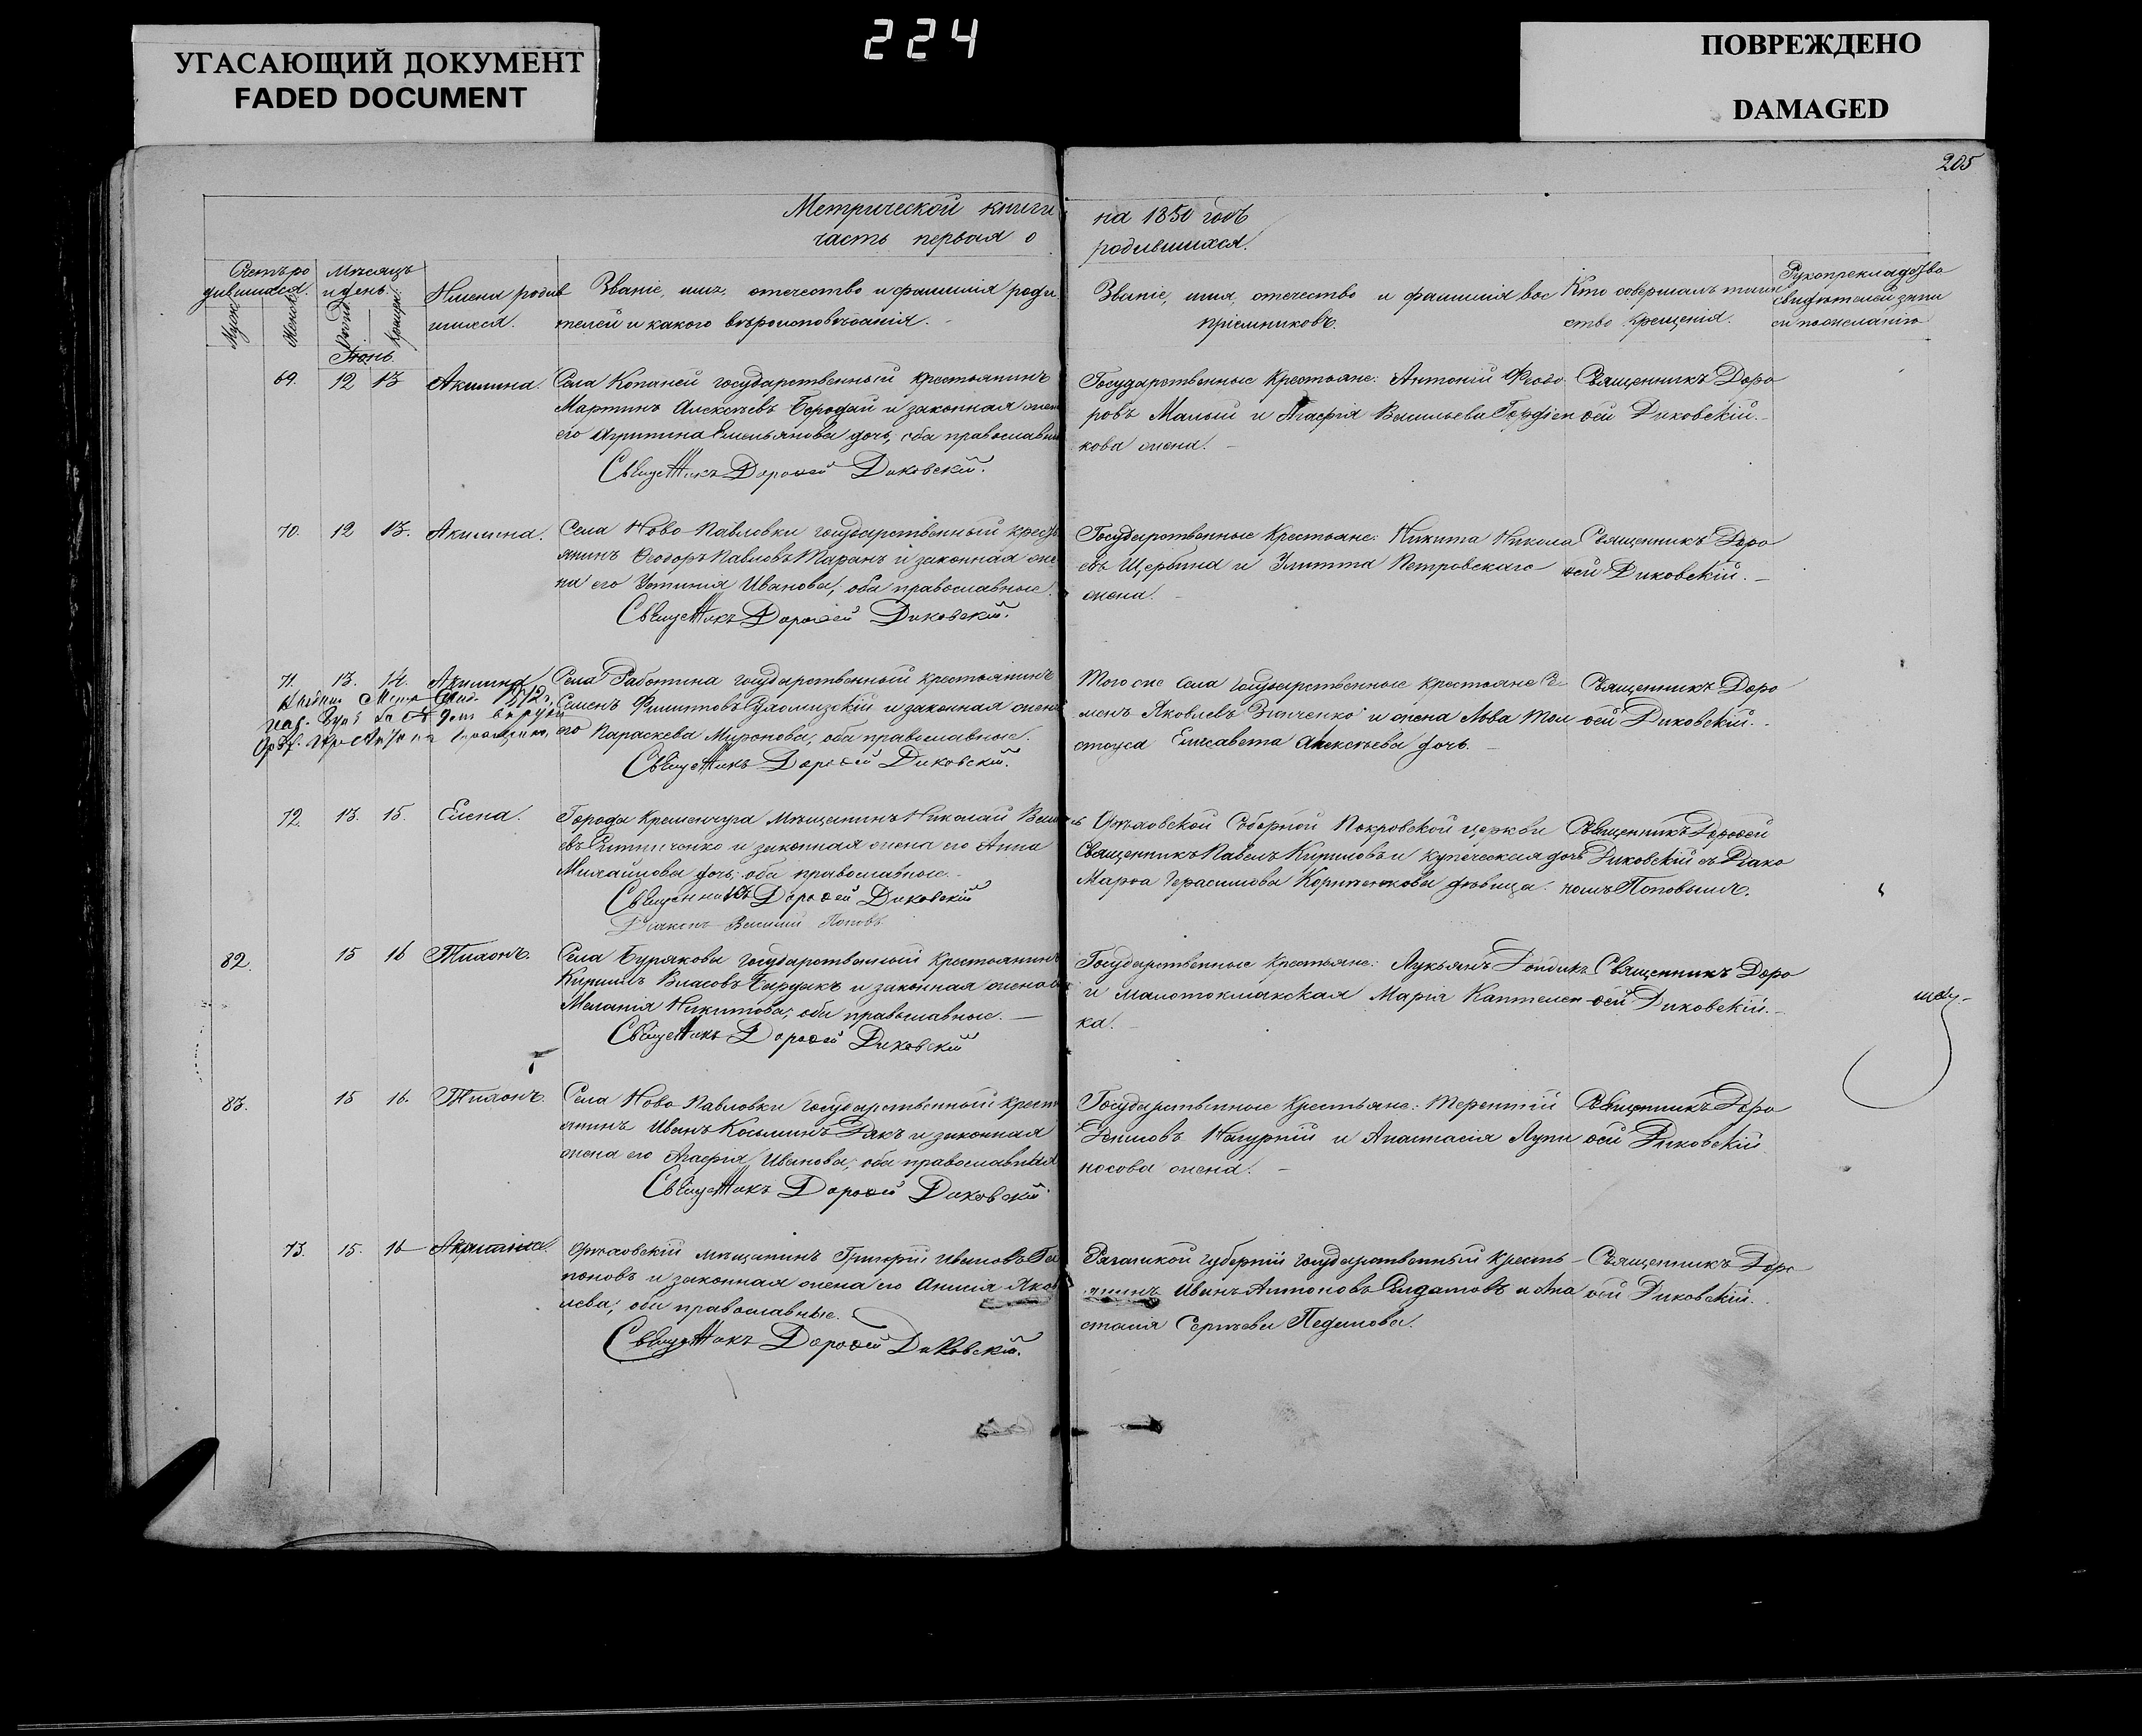 УГАСАЮЩИЙ ДОКУМЕНТ
FADED DOCUMENT
224
ПОВРЕЖДЕНО
DAMAGED
205
Метрической книги на 1850 годъ
часть первая о родившихся.
Счетъ родившихся.
Муж. Женс.
Мѣсяцъ и день.
Рожден. Крещен.
Имена родившихся.
Званіе, имя, отечество и фамилія родителей и какого вѣроисповѣданія.
Званіе, имя, отечество и фамилія воспріемниковъ.
Кто совершалъ таинство крещенія.
Рукоприкладство свидѣтелей записи по желанію
Іюнь.
69. 12 13 Акилина. Села Копаней государственный крестьянинъ
Мартинъ Алексѣевъ Бородай и законная жена
его Агрипина Емельянова дочь, оба православные
Священникъ Дорофей Диковскій.
Государственные крестьяне: Антоній Феодо
ровъ Малый и Агафія Васильева Гордіен
кова жена.
Священникъ Доро
фей Диковскій.
70. 12 13. Акилина. Села Ново-Павловки государственный кресть
янинъ Феодоръ Павловъ Таранъ и законная же
на его Устинія Иванова, оба православные.
Священникъ Дорофей Диковскій.
Государственные крестьяне: Никита Никола
евъ Щербина и Улитта Петровскаго
жена.
Священникъ Доро
фей Диковскій.
71. 13. 14. Акилина. Села Работина государственный крестьянинъ
Семенъ Филиповъ и законная жена
его Параскева Миронова, оба православные.
Священникъ Дорофей Диковскій.
Того же села государственные крестьяне Се
менъ Яковлевъ Зинченко и жена Льва Тол
стоуса Елисавета Алексѣева дочь.
Священникъ Доро
фей Диковскій.
72. 13. 15. Елена. Города Кременчуга мѣщанинъ Николай
и законная жена его Анна
Михайлова дочь, оба православные.
Священникъ Дорофей Диковскій
Діаконъ Василій Поповъ
Орѣховской Соборной Покровской церкви
Священникъ Павелъ Кириловъ и купеческая дочь
Марфа Герасимова дѣвица.
Священникъ Дорофей
Диковскій съ Діако
номъ Поповымъ.
82. 15 16 Тихонъ. Села Бурякова государственный крестьянинъ
Кириллъ Власовъ и законная жена
Меланія Никитова, оба православные.
Священникъ Дорофей Диковскій
Государственные крестьяне: Лукьянъ
и малотокмакская Марія Кантемен
ка.
Священникъ Доро
фей Диковскій.
83. 15 16. Тихонъ. Села Ново-Павловки государственный кресть
янинъ Иванъ Косминъ Дякъ и законная
жена его Агафія Иванова, оба православныя
Священникъ Дорофей Диковскій
Государственные крестьяне: Терентій
Денисовъ Нагурній и Анастасія Лупи
носова жена.
Священникъ Доро
фей Диковскій
73. 15. 16 Акилина. Орѣховскій мѣщанинъ Григорій Ивановъ Га
поновъ и законная жена его Анисія Яков
лева, оба православные.
Священникъ Дорофей Диковскій.
губерніи государственный кресть
янинъ Иванъ Антоновъ и Ана
стасія Сергѣева Пединова.
Священникъ Доро
фей Диковскій.